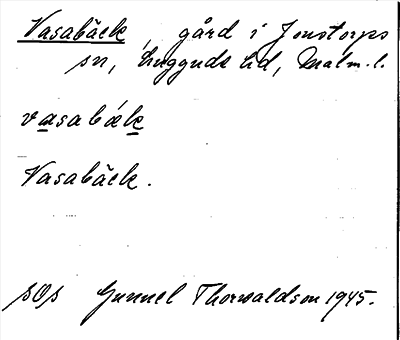 Vasabäck, gård i Jonstorps
sn, Luggude hd, Malm. l.
vasabǽk
Vasabäck.
sOs Gunnel Thorwaldson 1945.